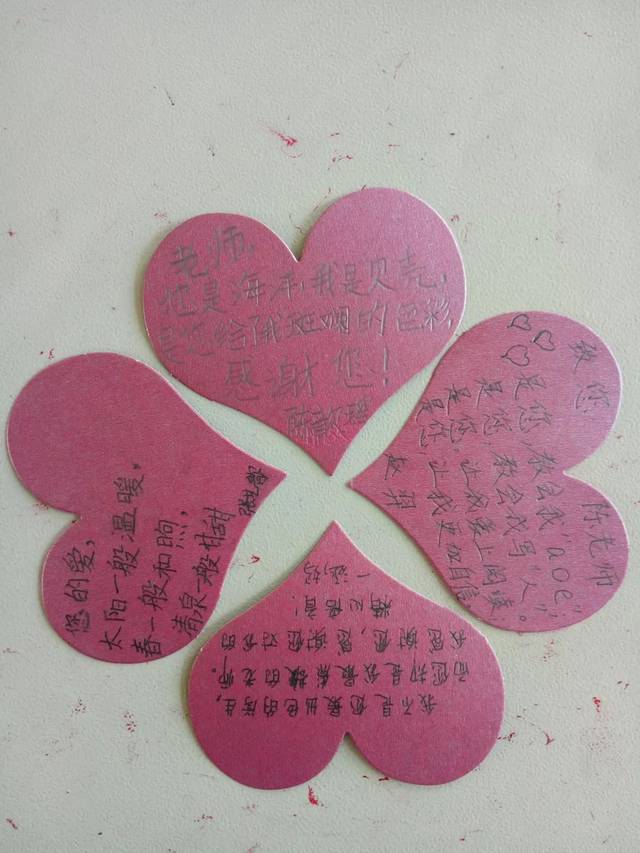 老师，
您是海洋，我是贝壳，
是您给了我斑斓的色彩，
感谢您！
陈
致您 陈老师
是您，教会我"aoe"，
是您，教会我写"人"，
是您，让我爱上阅读，
是您，让我更加自信。
赵翔
我不是您最出色的学生，
而您却是我最崇敬的老师。
我感谢您，感谢您对我的
精心培育！
您的爱，
太阳一般温暖，
春一般和煦，
清泉一般甘甜